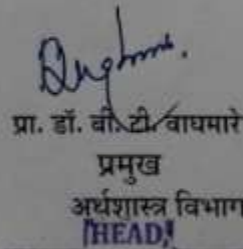 प्रा. डॉ. बी. टी. वाघमारे
प्रमुख
अर्थशास्त्र विभाग
HEAD